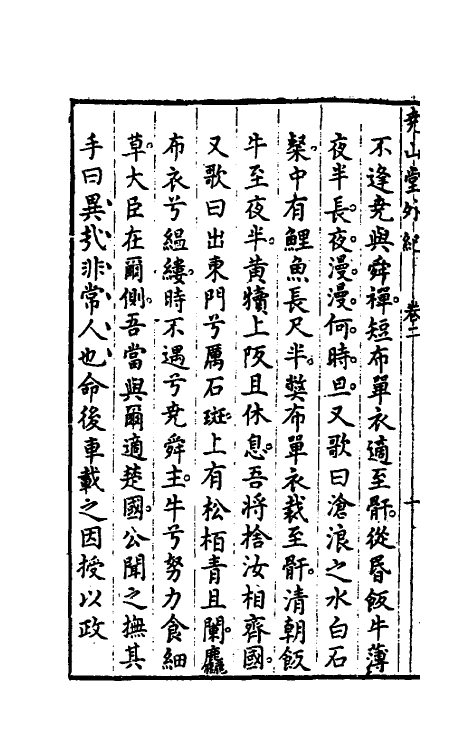 堯山堂外紀 卷二 十
不逢堯與舜禪。短布單衣適至骭。從昏飯牛薄
夜半。長夜。漫漫。何時。旦。又歌曰滄浪之水白石
粲。中有鯉魚長尺半。弊布單衣裁至骭。清朝飯
牛至夜半。黃犢上阪且休息。吾將捨汝相齊國。
又歌曰出東門兮厲石斑。上有松栢青且闌。麤
布衣兮縕縷。時不遇兮堯舜主。牛兮努力食細
草。大臣在爾側。吾當與爾適楚國。公聞之撫其
手曰異哉、非、常、人、也、命後車載之因授以政